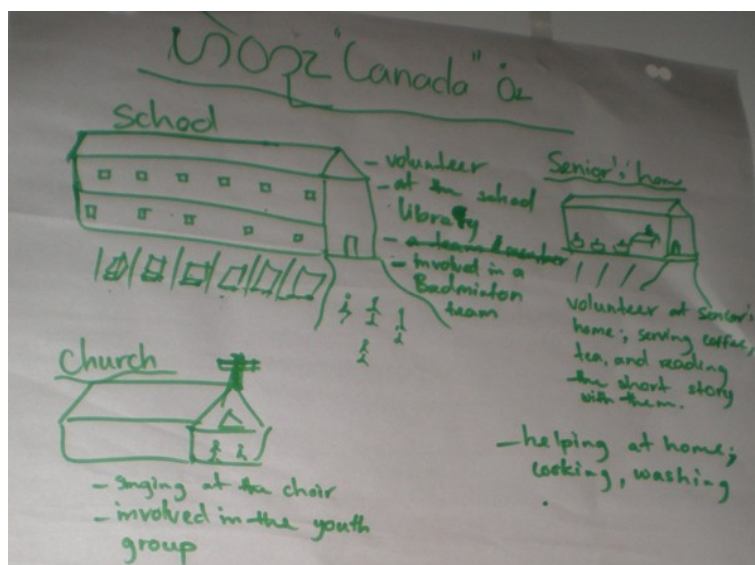 "Canada"
School
- volunteer
- at the school
library
- a team member
- involved in a
Badminton
team
Senior's' home
volunteer at senior's
home; serving coffee,
tea, and reading
the short story
with them.
- helping at home;
cooking, washing
.
Church
- singing at the choir
- involved in the youth
group